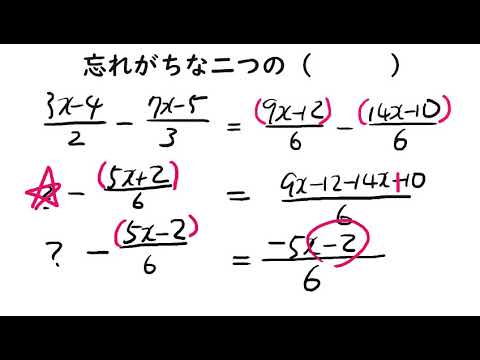 忘れがちな二つの（　　　）
(3x-4)/2 - (7x-5)/3 = (9x-12)/6 - (14x-10)/6
- (5x+2)/6 = (9x-12-14x+10)/6
? - (5x-2)/6 = (-5x-2)/6